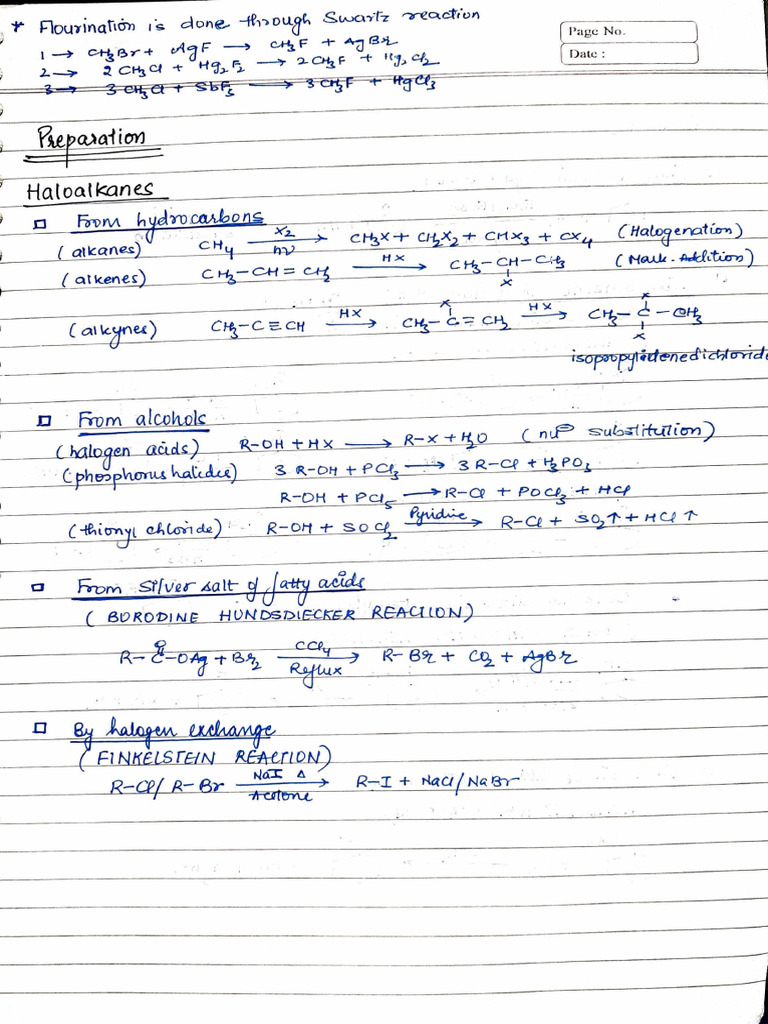 * Flourination is done through Swartz reaction
Page No.
Date :
1 → CH3Br + AgF → CH3F + AgBr
2 → 2CH3Cl + Hg2F2 → 2CH3F + Hg2Cl2
3 → 3CH3Cl + SbF3 → 3CH3F + HgCl3
Preparation
Haloalkanes
□ From hydrocarbons
(alkanes) CH4 X2 hν → CH3X + CH2X2 + CHX3 + CX4 (Halogenation)
(alkenes) CH3-CH=CH2 HX → CH3-CH-CH3 (Mark. Addition)
X
X X
(alkynes) CH3-C≡CH HX → CH3-C=CH2 HX → CH3-C-CH3
X
isopropylidenedichloride
□ From alcohols
(halogen acids) R-OH + HX → R-X + H2O (nuᵖ substitution)
(phosphorus halides) 3 R-OH + PCl3 → 3 R-Cl + H3PO3
R-OH + PCl5 → R-Cl + POCl3 + HCl
(thionyl chloride) R-OH + SOCl2 Pyridine → R-Cl + SO2↑ + HCl↑
□ From Silver salt of fatty acids
(BORODINE HUNDSDIECKER REACTION)
O
R-C-OAg + Br2 CCl4 Reflux → R-Br + CO2 + AgBr
□ By halogen exchange
(FINKELSTEIN REACTION)
R-Cl/R-Br NaI Δ Acetone → R-I + NaCl/NaBr